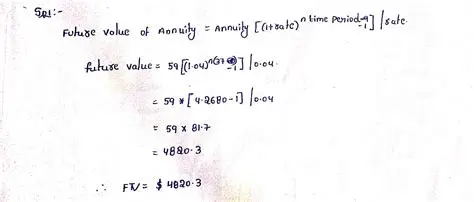 Sol:-
Future value of Annuity = Annuity [(1+rate)^n time period -1] / rate.
future value = 59 [(1.04)^(37) -1] / 0.04.
= 59 * [4.2680-1] / 0.04
= 59 x 81.7
= 4820.3
∴ FV = $ 4820.3